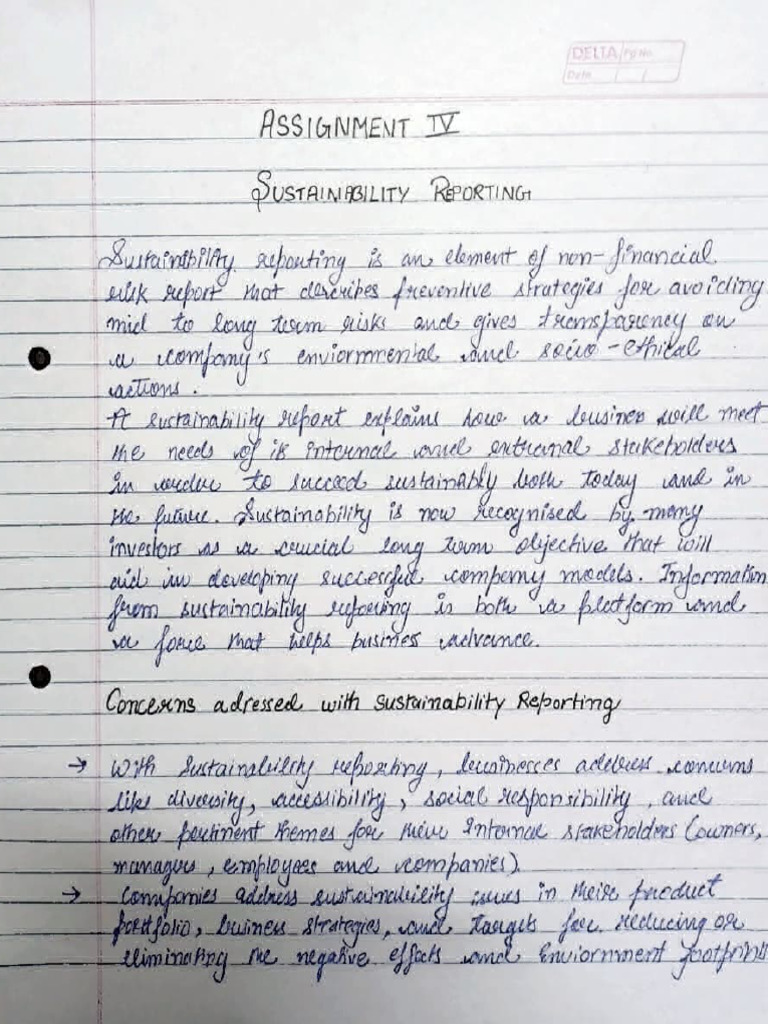 DELTA Pg No.
Date / /
ASSIGNMENT IV
SUSTAINABILITY REPORTING
Sustainibility reporting is an element of non-financial
risk report that describes preventive strategies for avoiding
mid to long term risks and gives transparency on
a company's enviormental and socio-ethical
actions.
A sustainability report explains how a business will meet
the needs of its internal and extranal stakeholders
in order to succeed sustainably both today and in
the future. Sustainability is now recognised by many
investors as a crucial long term objective that will
aid in developing successful company models. Information
from sustainability reporting is both a platform and
a force that helps business advance.
Concerns adressed with sustainability Reporting
→ With sustainability reporting, businesses address concerns
like diversity, accessibility, social responsibility, and
other pertinent themes for their Internal stakeholders (owners,
managers, employees and companies).
→ Companies address sustainability issues in their product
portfolio, business strategies, and targets for reducing or
eliminating the negative effects and Enviornment footprints